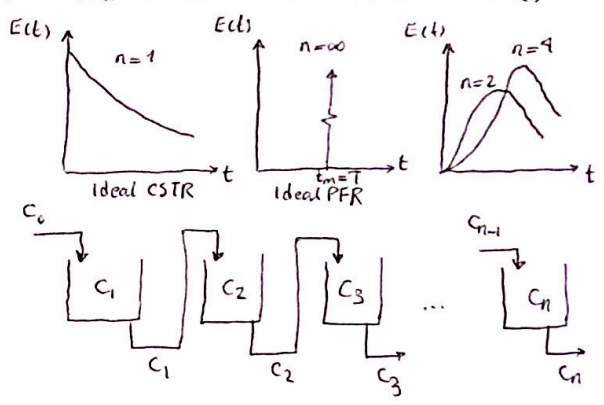 E(t)
n=1
t
Ideal CSTR
E(t)
n=∞
t
tm=T
Ideal PFR
E(t)
n=4
n=2
t
C₀
C₁
C₁
C₂
C₂
C₃
C₃
...
Cₙ₋₁
Cₙ
Cₙ